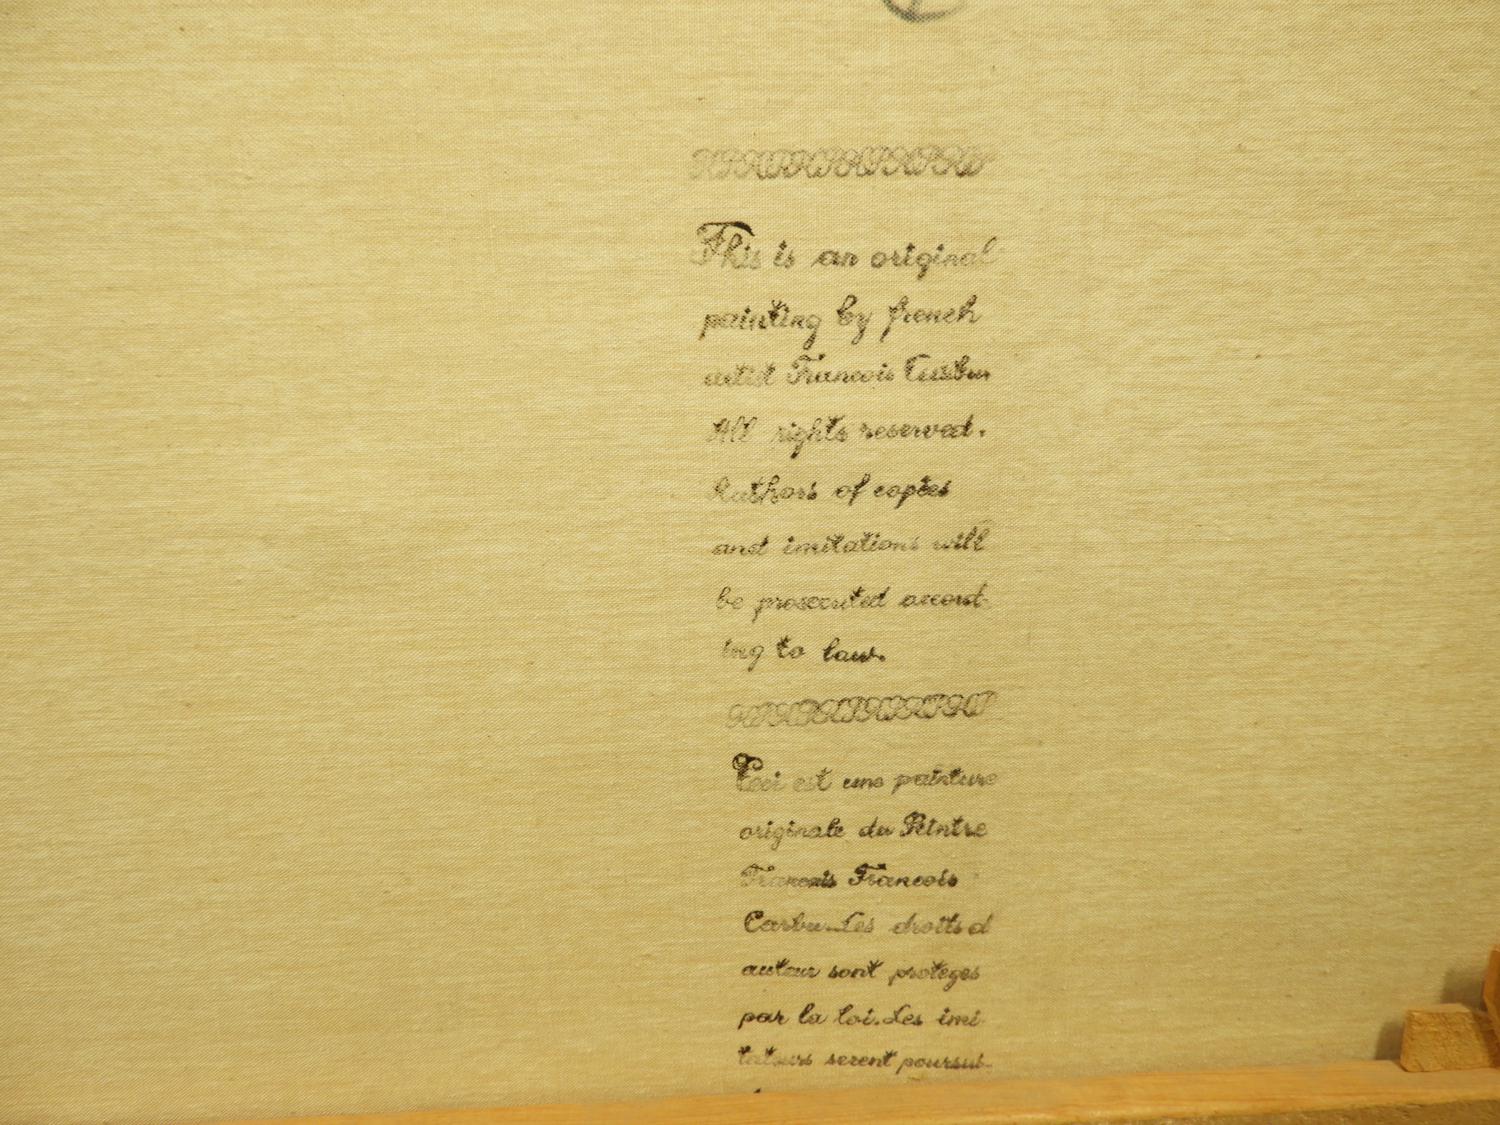 This is an original
painting by french
artist Francois Carbu
All rights reserved.
Authors of copies
and imitations will
be prosecuted accord-
ing to law.
Ceci est une painture
originale du Peintre
Francois Francois
Carbu. Les droits d
auteur sont proteges
par la loi. Les imi-
tateurs seront poursui-